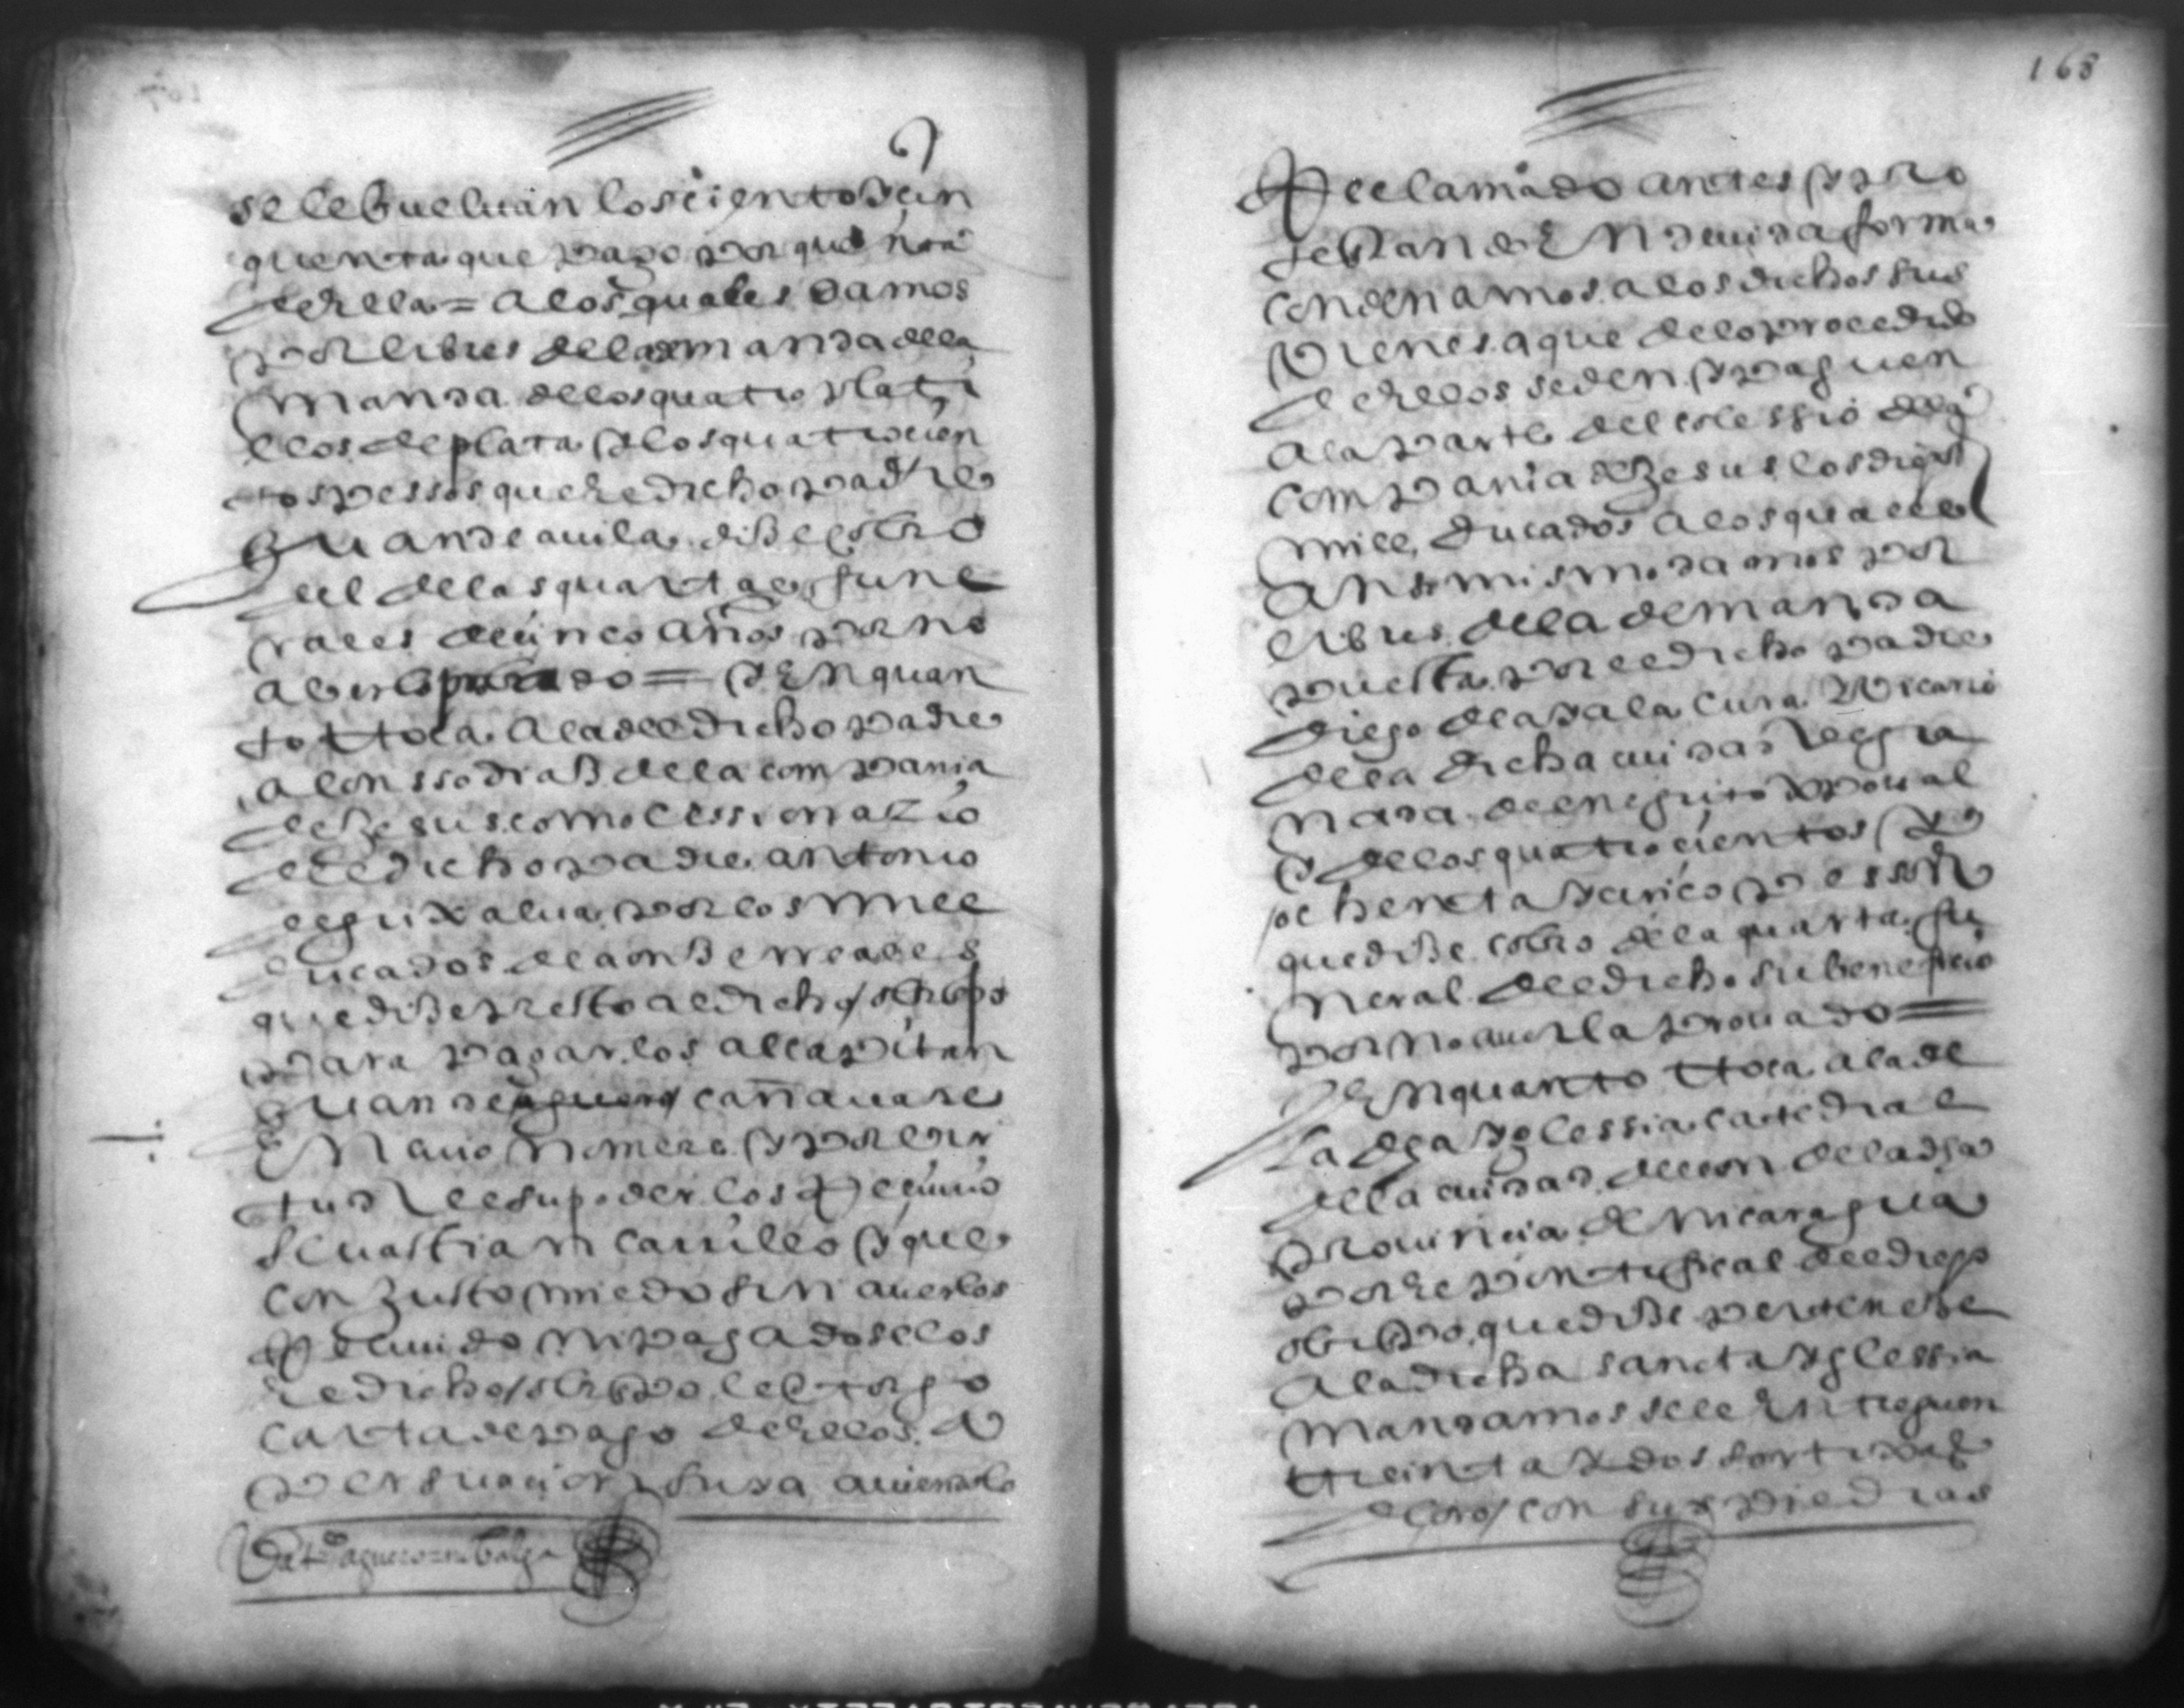 se le buelvan los ciento y cin
quenta que pago por quenta
de ella = a los quales damos
por libres de la demanda de la
manda de los quatro plati
llos de plata y los quatrocien
tos pessos que el dicho padre
Juan de avila diçe cobro
el de las quartas fune
rales de cinco años por no
aberlo provado = y en quan
to ttoca a la del dicho padre
alonsso diaß de la compania
de Jesus como cessionario
del dicho padre antonio
de grixalva por los mill
ducados de a onße rreales
que diße presto al dicho obispo
para pagarlos al capitan
Juan de aguero cañavares
En cuio nomere y por vir
tud de su poder los Recivio
sevastian carrillo y que
con Justo miedo sin averlos
Recivido ni pagadoselos
el dicho obispo le otorgo
carta de pago de ellos a
persuacion suya aviendolo
aguero = no balga
168
Reclamado antes y pro
testando En devida forma
condenamos a los dichos sus
vienes a que de lo procedido
de ellos se den y paguen
a la parte del colessio de la
compania de Jesus los dichos
mill ducados a los quales
ansimismo damos por
libres de la demanda
puesta por el dicho padre
Diego de ayala Cura Vicario
de la dicha ciudad de gra
nada del negrito
y de los quatrocientos y
ochenta y cinco pessos
que diße cobro de la quarta fu
neral del dicho su beneficio
por no averla provado =
y En quanto ttoca a la de
La dha yglessia catedral
de la ciudad de leon de la dha
provincia de nicaragua
por el pontifical del dicho
obispo que diße perteneße
a la dicha sancta yglessia
mandamos se le Entreguen
ttreinta y dos sortixas
de oro con sus piedras